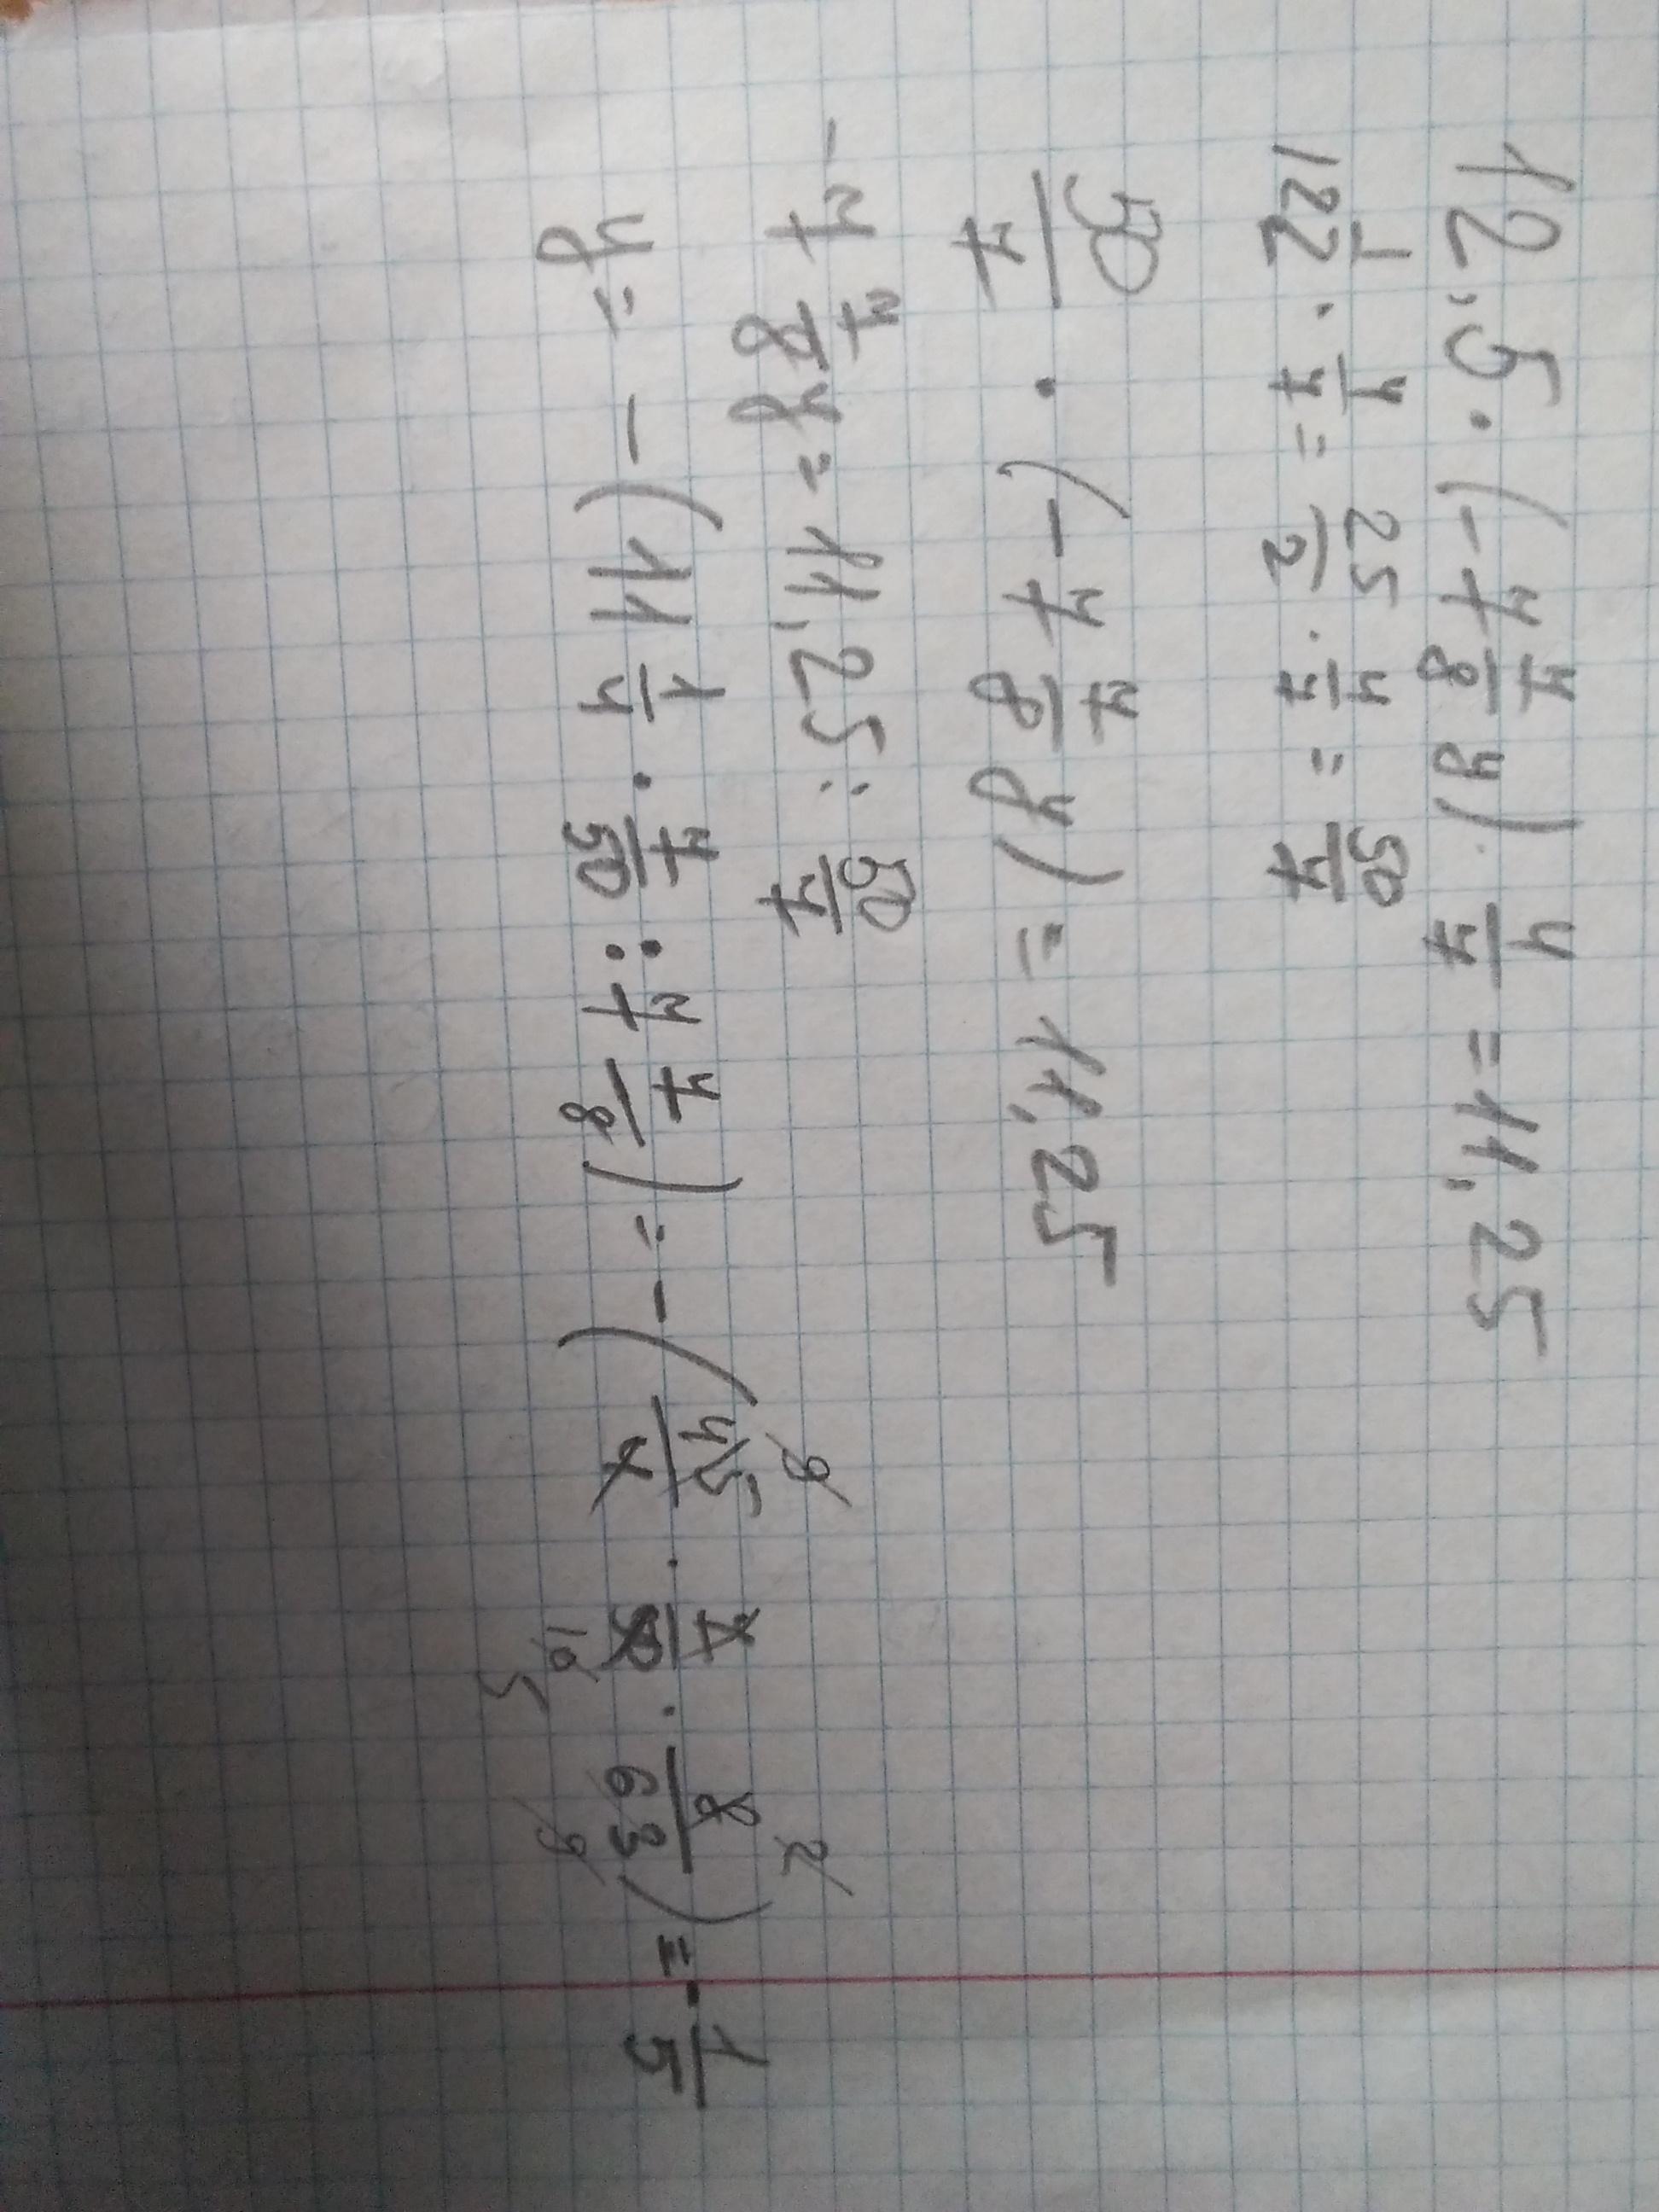 12,5 · (-7 7/8 y) · 4/7 = 11,25
12 1/2 · 4/7 = 25/2 · 4/7 = 50/7
50/7 · (-7 7/8 y) = 11,25
-7 7/8 y = 11,25 : 50/7
y = -(11 1/4 · 7/50 : 7 7/8) = -(45/4 · 7/50 · 8/63) = -1/5